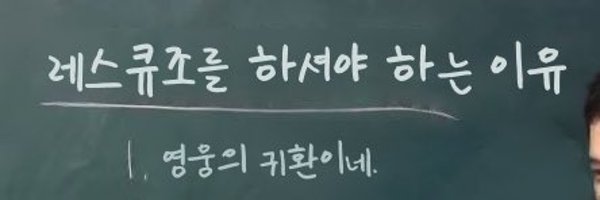 레스큐조를 하셔야 하는 이유
1. 영웅의 귀환이네.